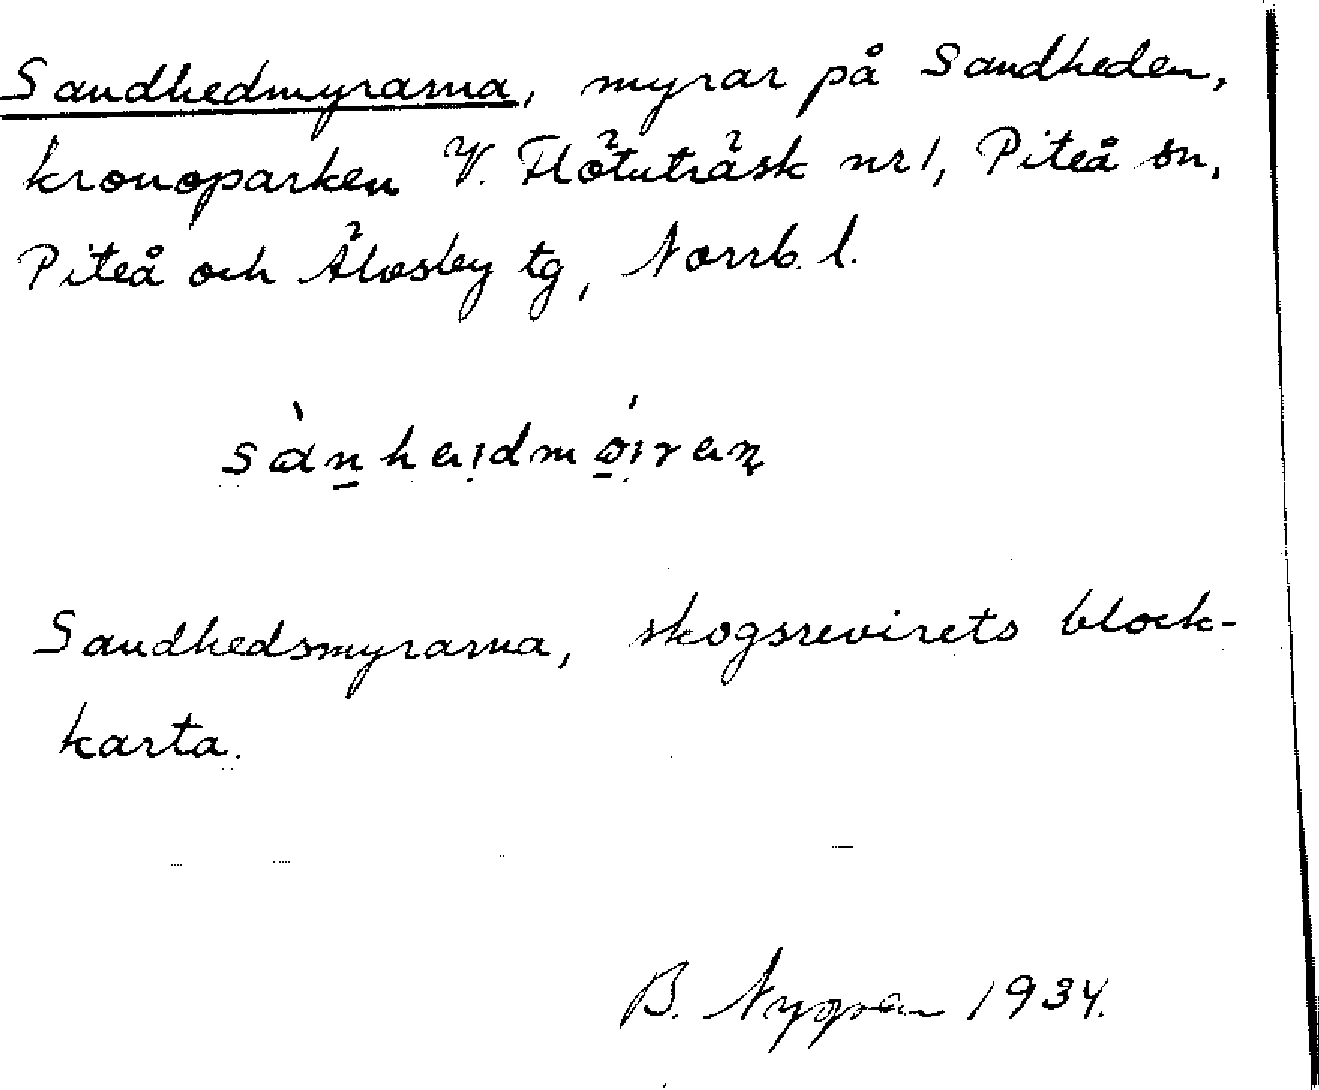 Sandhedmyrarna, myrar på Sandheden,
kronoparken V. Flötuträsk nr 1, Piteå sn,
Piteå och Älvsby tg, Norrb. l.
sànhaidmöiran
Sandhedsmyrarna, skogsrevirets block-
karta.
B. Nygren 1934.